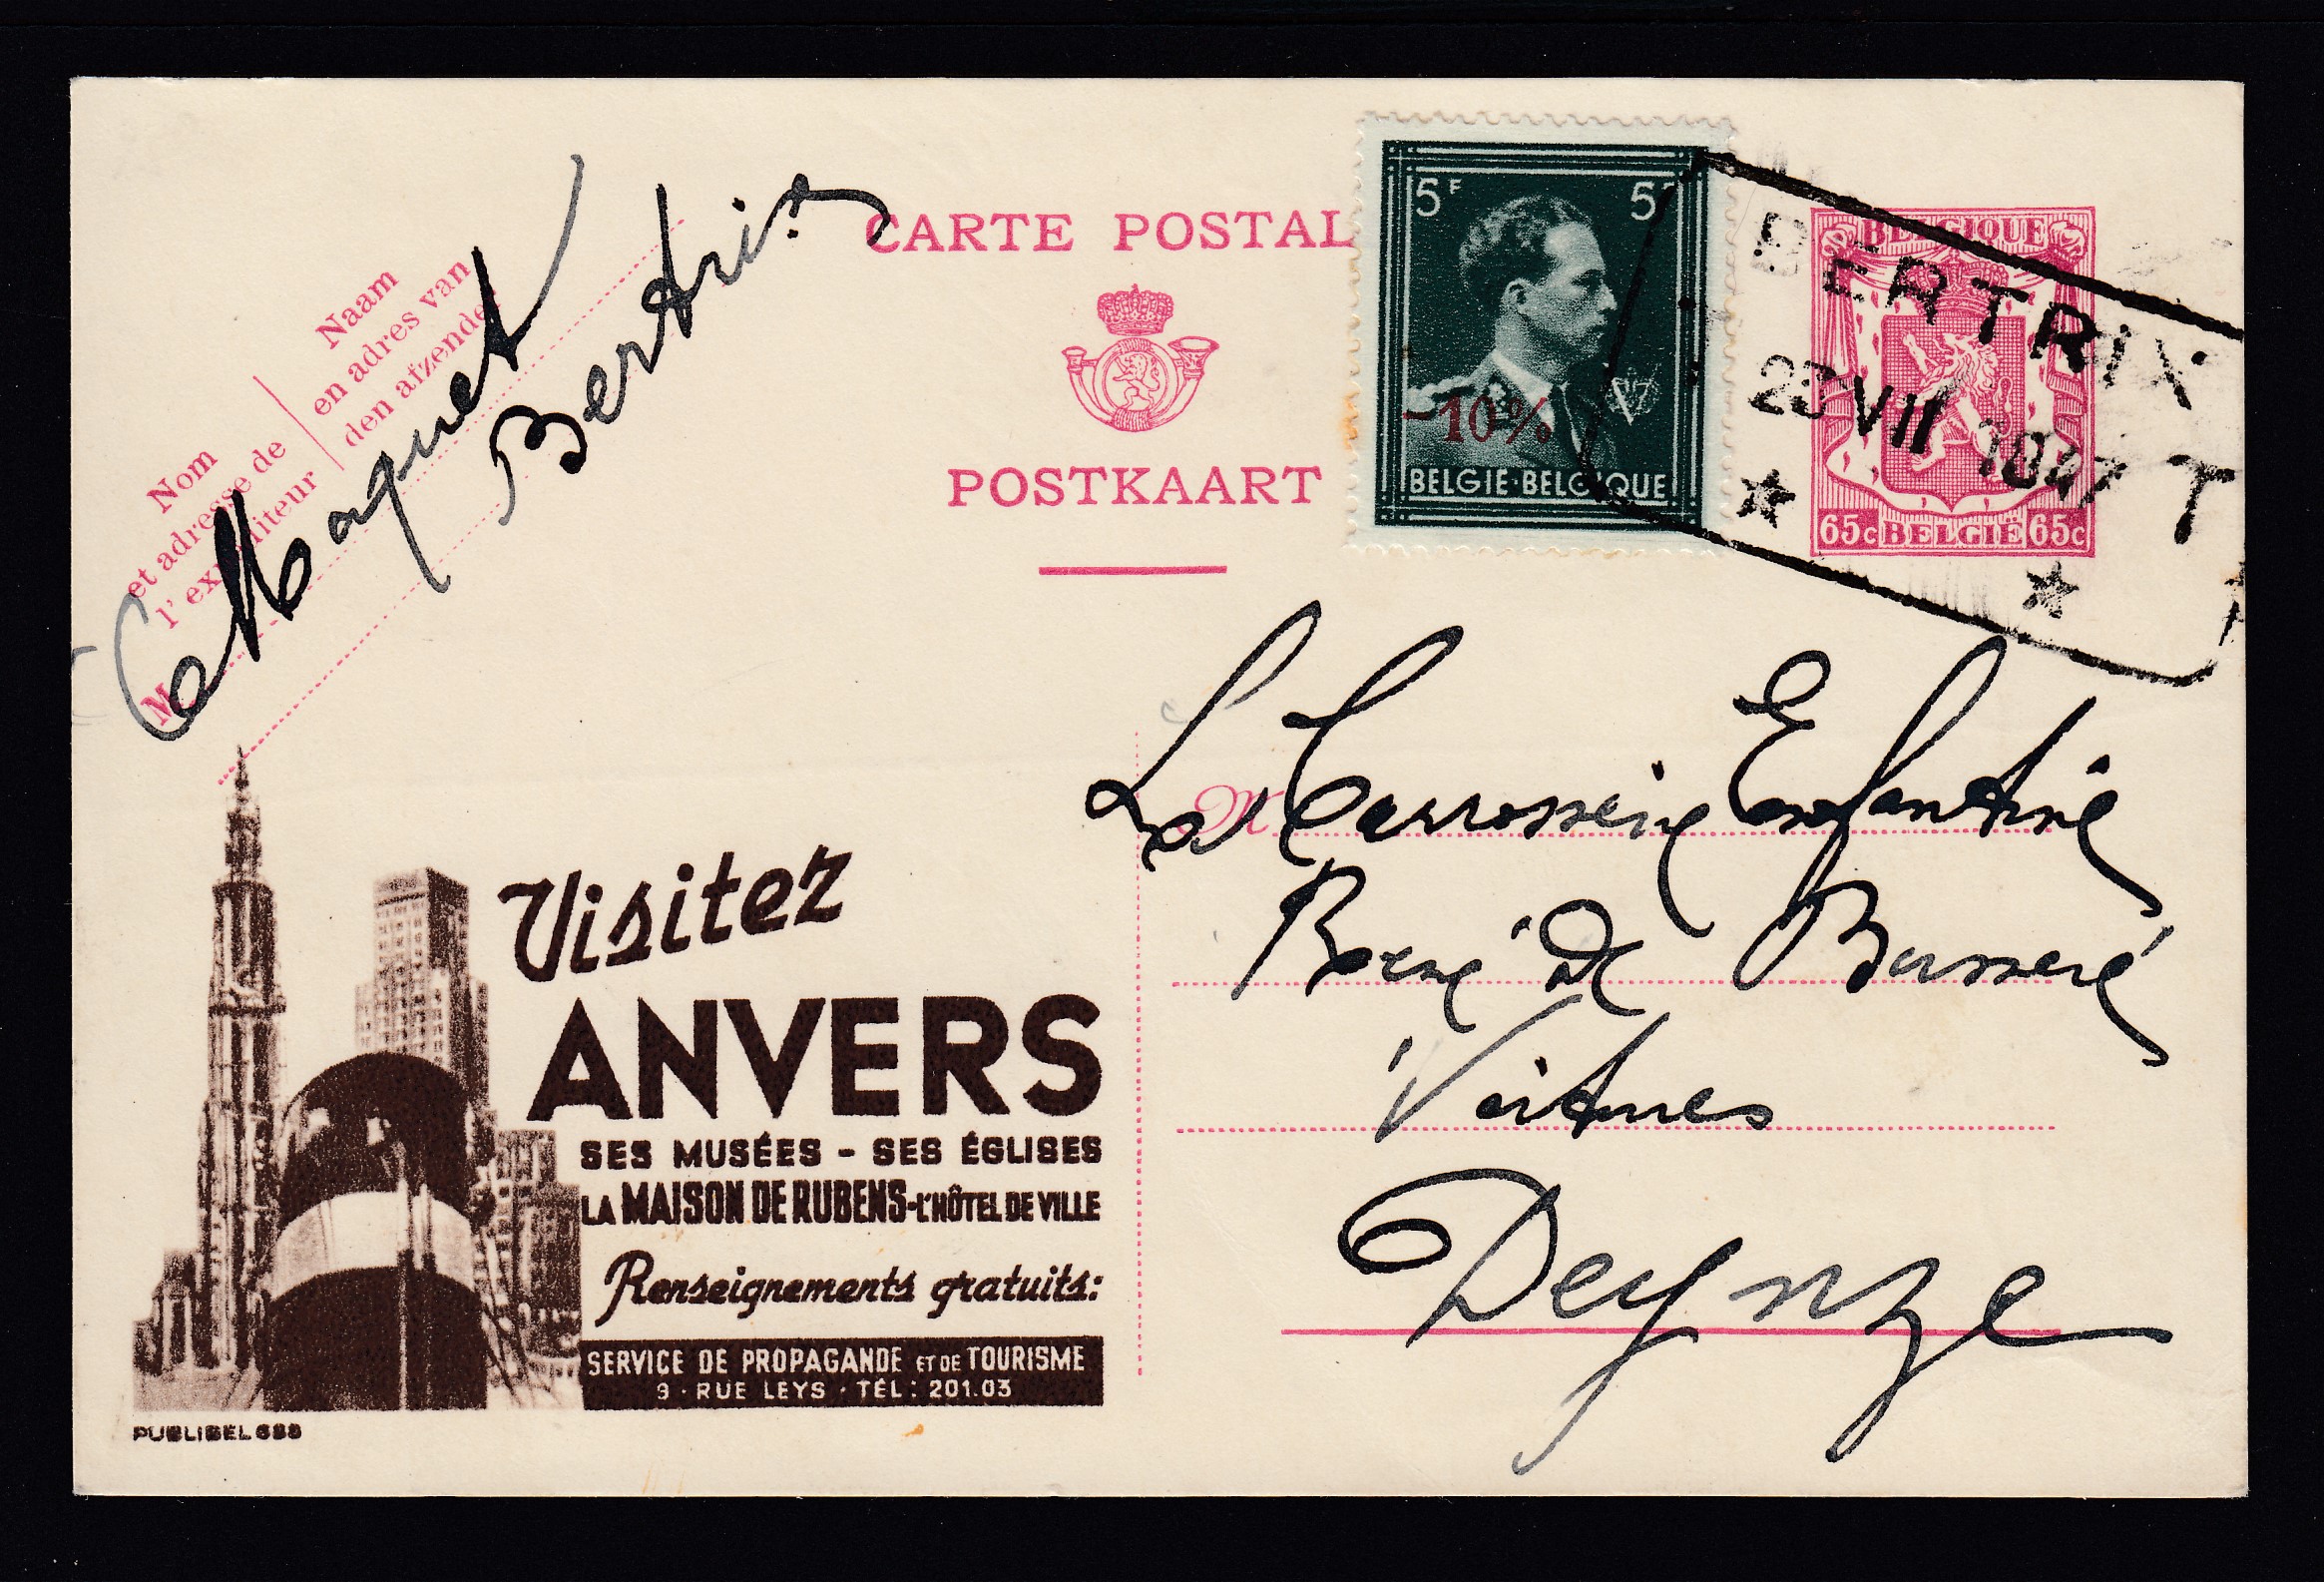 CARTE POSTAL
POSTKAART
Naam
en adres van
den afzender
Nom
et adresse de
l'expéditeur
M
Maquet
Bertrix
5F 5F
-10%
BELGIE-BELGIQUE
BELGIQUE
65c BELGIË 65c
BERTRIX
VII 1947
T
M
La Carrosserie Enfantine
René De
Virtures
Deynze
Visitez
ANVERS
SES MUSÉES - SES ÉGLISES
LA MAISON DE RUBENS-L'HÔTEL DE VILLE
Renseignements gratuits:
SERVICE DE PROPAGANDE ET DE TOURISME
9 · RUE LEYS · TÉL: 201.03
PUBLIBEL 688